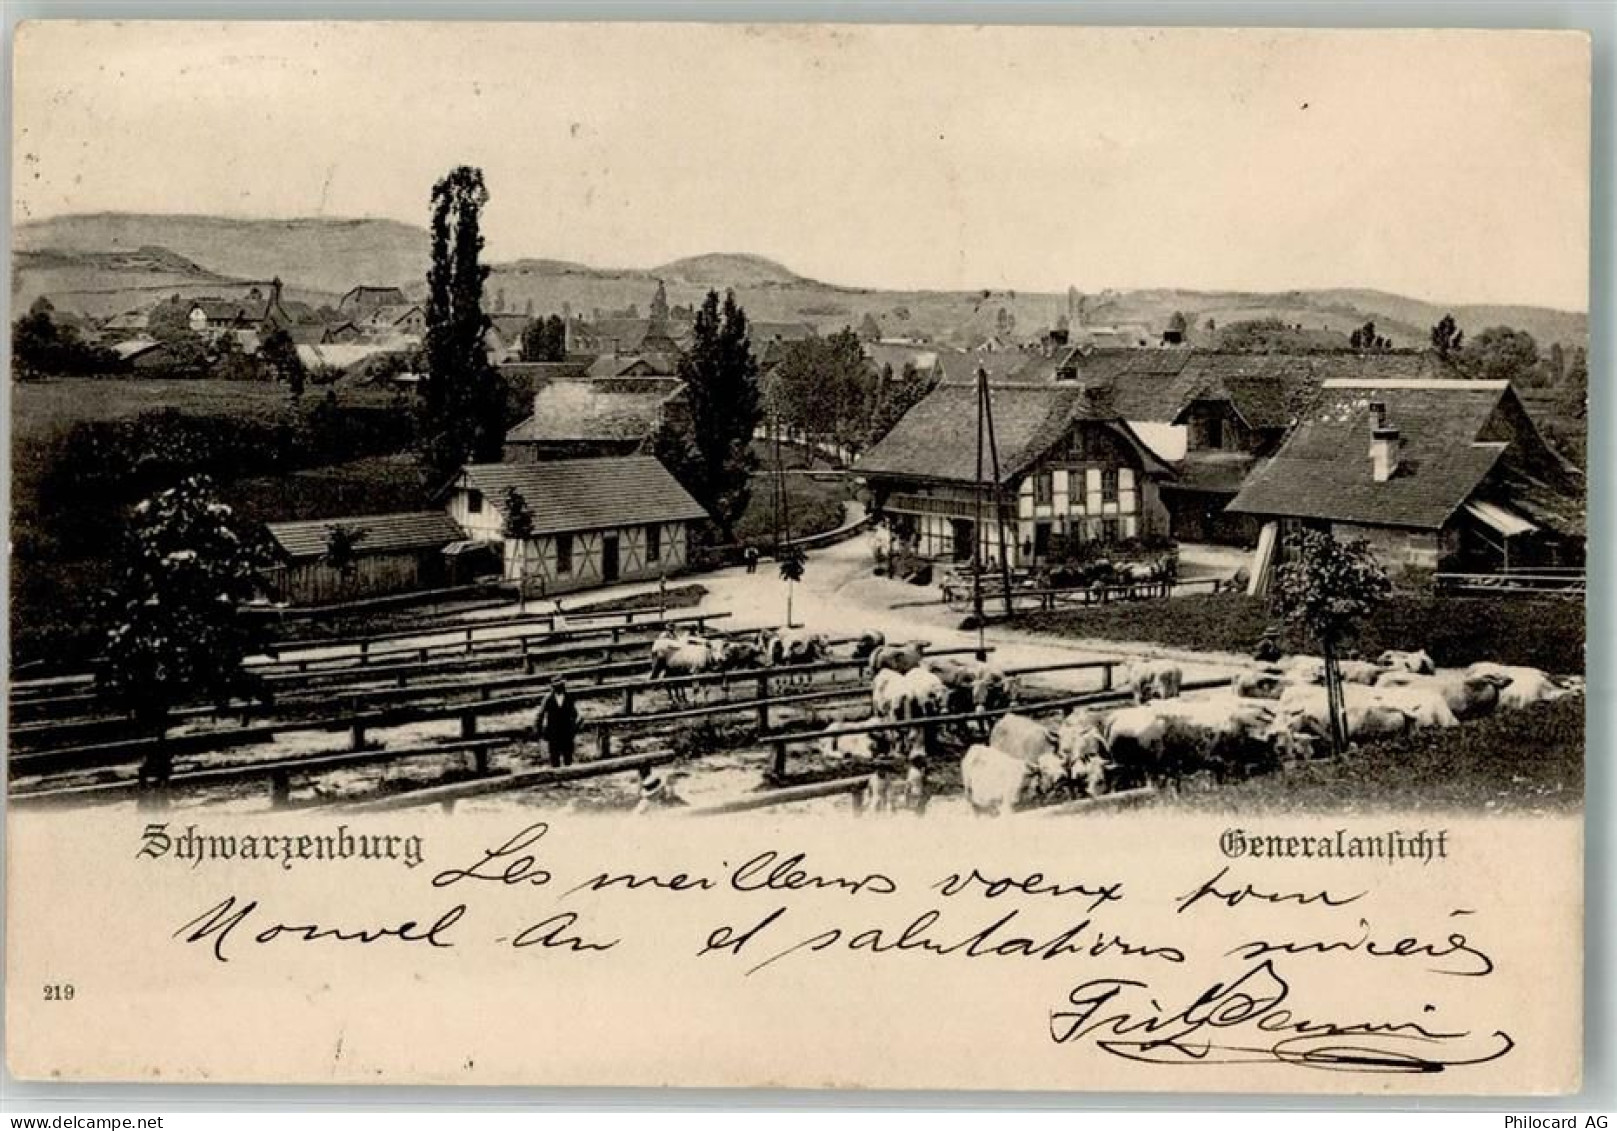 Schwarzenburg
Generalansicht
Les meilleurs voeux pour
Nouvel-An et salutations sincères
219
Philocard AG